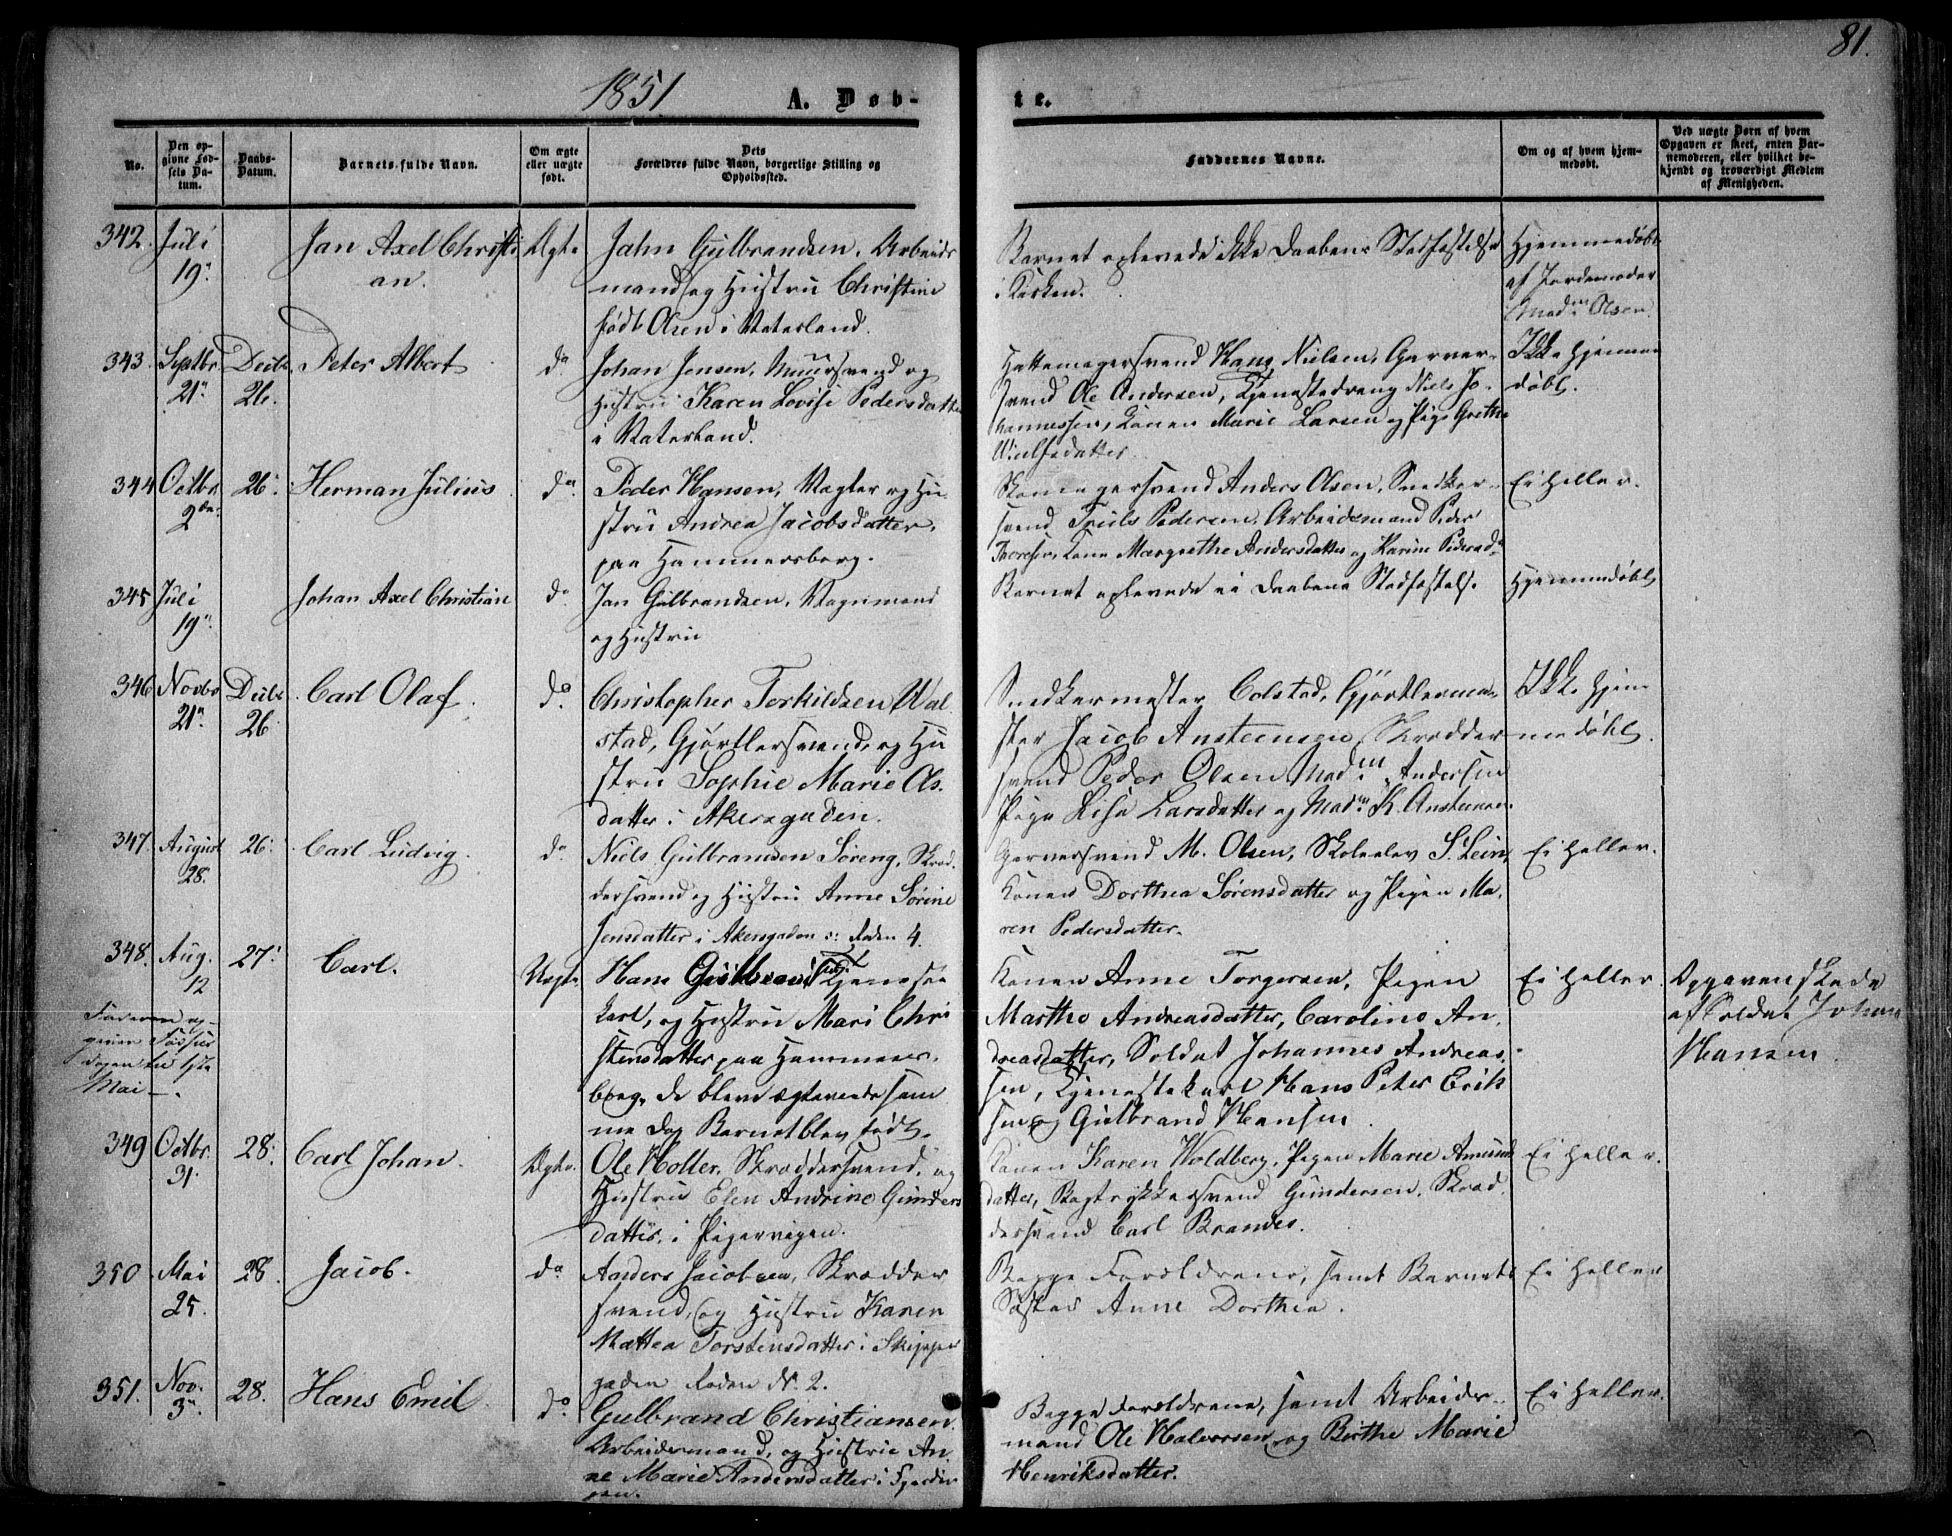 81.
1851
A. Døb-
te.
No.
Den op-
givne Fød-
sels Da-
tum.
Daabs-
Datum.
Barnets fulde Navn.
Om ægte
eller uægte
født.
Dets
Forældres fulde Navn, borgerlige Stilling og
Opholdssted.
Faddernes Navne.
Om og af hvem hjem-
medøbt.
Ved uægte Børn af hvem
Opgaven er skeet, enten Bar-
nemoderen, eller hvilket be-
kjendt og troværdigt Medlem
af Menigheden.
342. Juli
19.
Jan Axel Christi
an.
Ægte
Jahn Gulbrandsen, Arbeids
mand og Hustru Christine
født Olsen i Vaterland.
Barnet oplevede ikke Daabens Stadfæstelse
i Kirken.
Hjemmedøbt
af Jordemoder
Madm Olsen.
343. Septbr
21.
Decbr
26.
Peter Albert
do
Johan Jensen, Muursvend og
Hustru Karen Lovise Pedersdatter
i Vaterland.
Hattemagersvend Hans Nielsen, Garver-
svend Ole Andersen, Tjenestedreng Niels Jo-
hannessen, Konen Marie Larsen og Pige Grethe
Nielsdatter
Ikke hjemme
døbt.
344 Octbr.
2den
26.
Herman Julius
do
Peder Hansen, Vægter og Hu-
stru Andrea Jacobsdatter,
paa Hammersborg.
Skomagersvend Anders Olsen, Snedker-
svend Truls Pedersen, Arbeidsmand Peder
Thoresen, Kone Margrethe Andersdatter og Karine Pedersd.
Ei heller.
345 Juli
19.
Johan Axel Christian
do
Jan Gulbrandsen, Vognmand
og Hustru
Barnet oplevede ei Daabens Stadfæstelse
Hjemmedøbt
346 Novbr
21.
Decbr
26
Carl Olaf.
do
Christopher Torkildsen Wal
stad, Gjørtlersvend, og Hu
stru Sophie Marie Ols
datter i Akersgaden.
Snedkermester Colstad, Gjørtlerme-
ster Jacob Ansteensen, Skrædder
svend Peder Olsen, Madm. Andersen
Pige Lise Larsdatter og Madm K. Ansteensen.
Ikke hjem
medøbt.
347. August
28.
26.
Carl Ludvig.
do
Niels Gulbransen Søreng, Skræd
dersvend og Hustru Anne Sørine
Jensdatter i Akersgaden Roden 4.
Garversvend M. Olsen, Skoleelev S. Lein,
Konen Dorthea Sørensdatter og Pigen Ma-
ren Pedersdatter.
Ei heller.
348. Aug.
12
27.
Carl.
Uægte
Hans Gulbrands Tjeneste
karl, og Hustru Mari Chri
stensdatter paa Hammers-
borg, de bleve ægteviede sam
me Dag Barnet blev født.
Konen Anne Torgersen, Pigen
Marthe Andreasdatter, Caroline An-
dreasdatter, Soldat Johannes Andreas-
sen, Tjenestekarl Hans Peter Erik
sen og Gulbrand Hansen
Ei heller
Opgaven skede
af Soldat Johan
Hansen
Faderen op-
giver
dagen til 1ste
Mai
349 Octbr.
31.
28.
Carl Johan.
Ægte.
Ole Holter, Skræddersvend, og
Hustru Elen Andrine Gunders
datter, i Pipervigen.
Konen Karen Woldberg, Pigen Marie Amunds
datter, Bogtrykkersvend Gundersen, Skræd
dersvend Carl Brandes.
Ei heller.
350 Mai
25.
28.
Jacob.
do
Anders Jacobsen, Skrædder
svend, og Hustru Karen
Mattea Torstensdatter i Skipper
gaden Roden Nr. 2.
Begge Forældrene, samt Barnets
Søster Anne Dorthea.
Ei heller
351. Nov.
3.
28.
Hans Emil.
do
Gulbrand Christiansen
Arbeidsmand, og Hustru An-
ne Marie Andersdatter i Fjerdin
gen.
Begge Forældrene, samt Arbeids-
mand Ole Halvorsen, og Birthe Marie
Henriksdatter.
Ei heller.